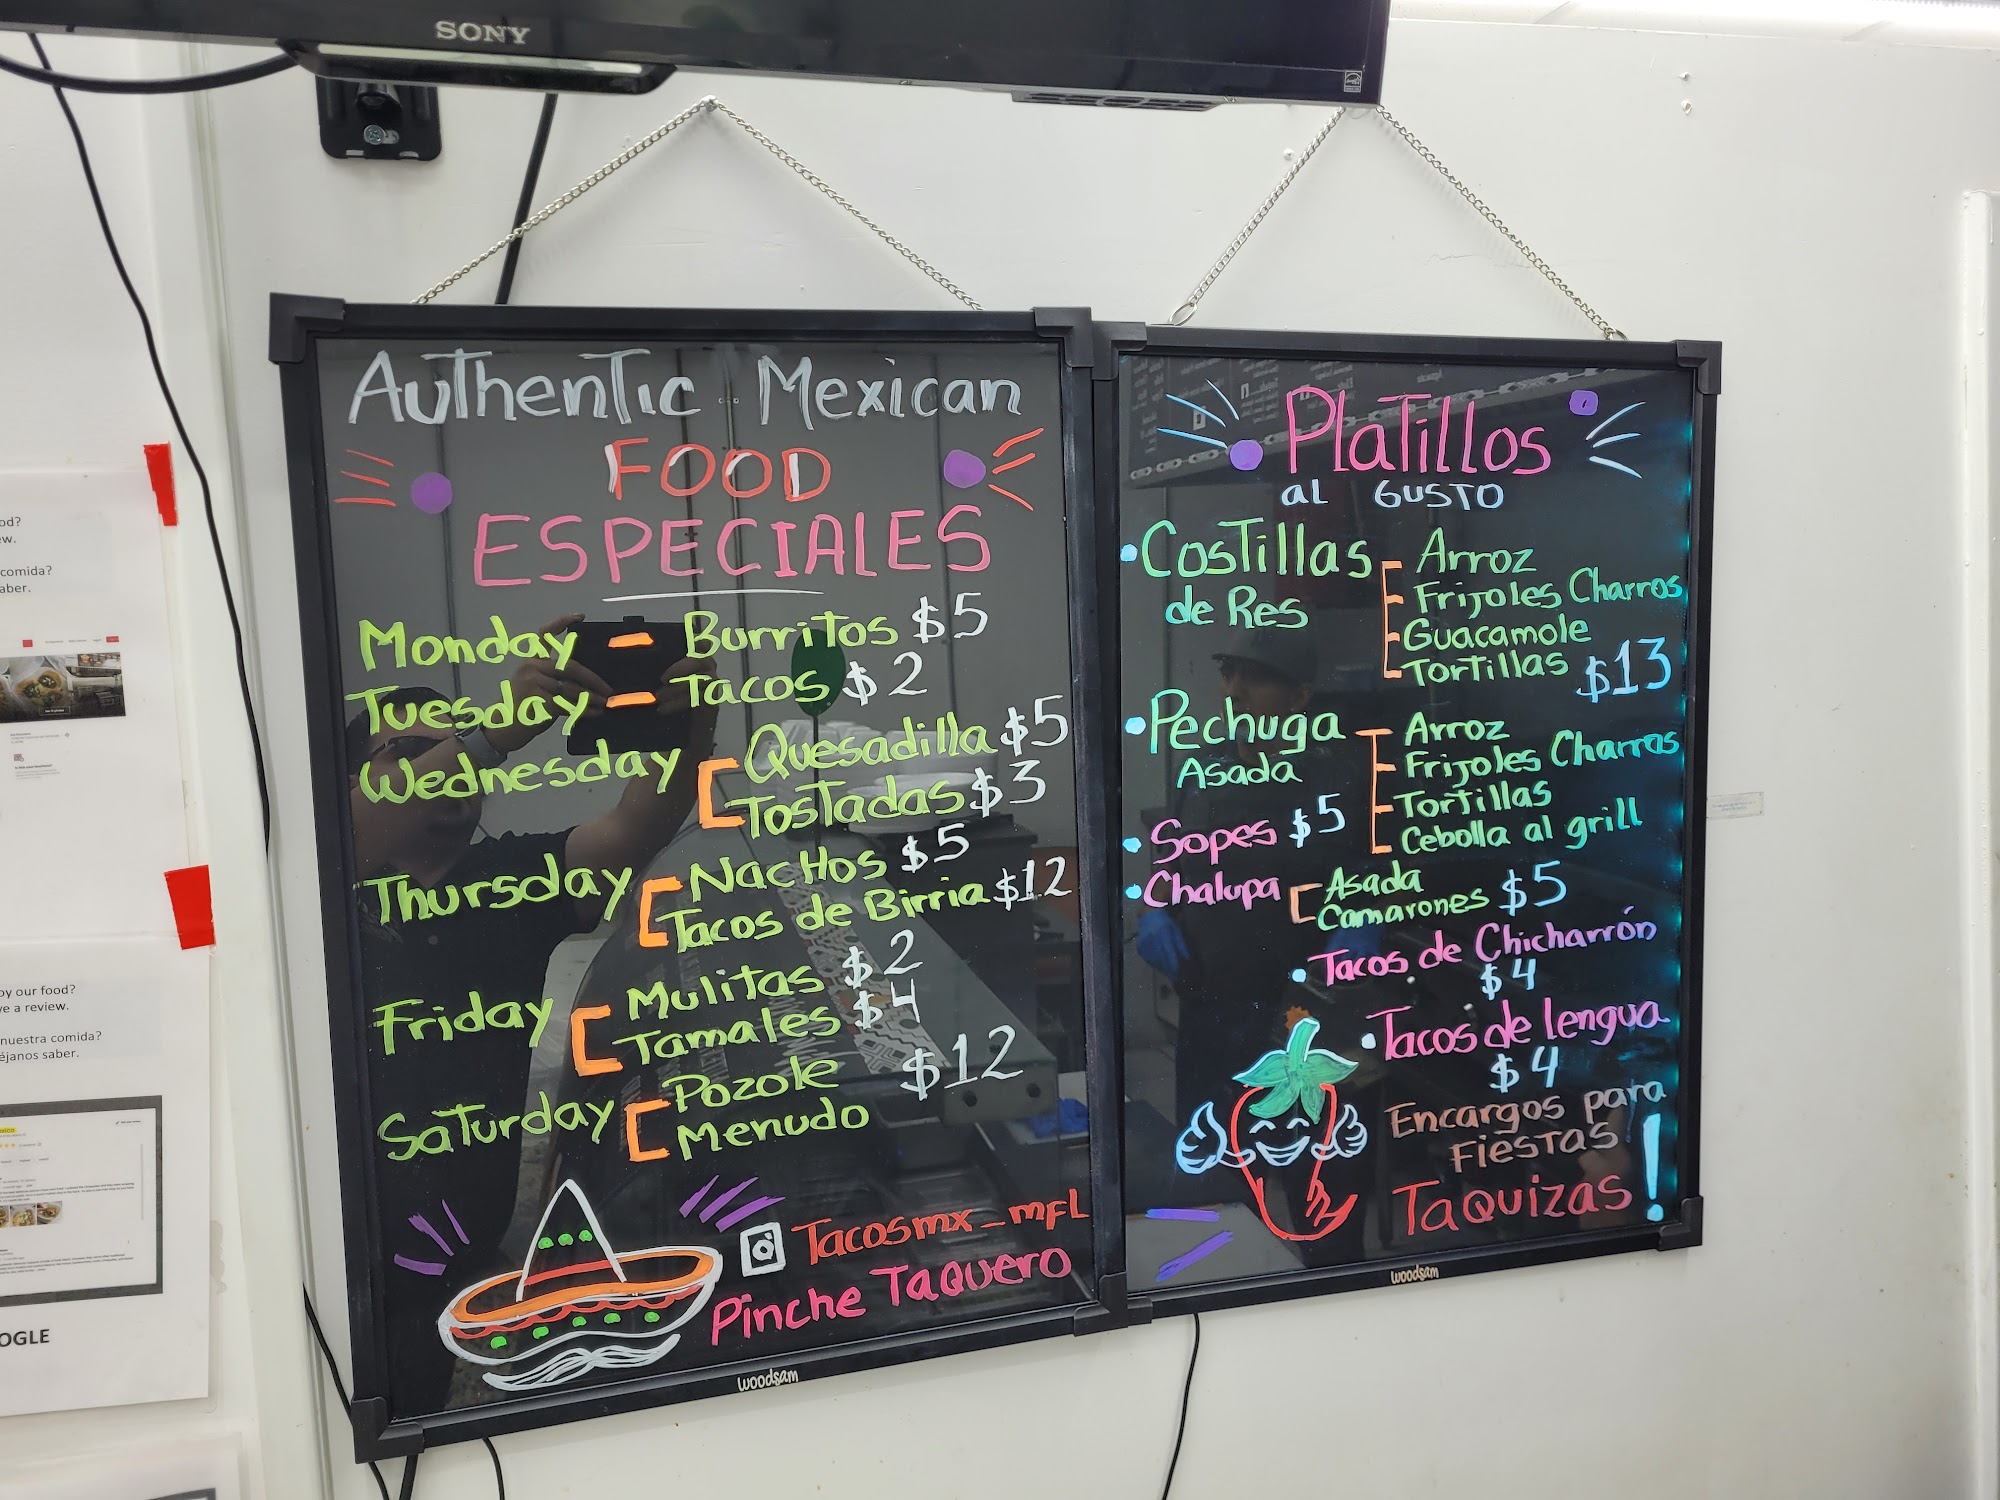 SONY
Authentic Mexican
FOOD
ESPECIALES
Monday - Burritos $5
Tuesday - Tacos $2
Wednesday Quesadilla $5
Tostadas $3
Thursday Nachos $5
Tacos de Birria $12
Friday Mulitas $2
Tamales $4
Saturday Pozole $12
Menudo
Tacosmx_mfl
Pinche Taquero
woodsam
Platillos
al GUSTO
Costillas
de Res
Arroz
Frijoles Charros
Guacamole
Tortillas $13
Pechuga
Asada
Arroz
Frijoles Charros
Tortillas
Cebolla al grill
Sopes $5
Chalupa Asada
Camarones $5
Tacos de Chicharrón
$4
Tacos de lengua
$4
Encargos para
Fiestas
Taquizas!
woodsam
od?
ew.
comida?
aber.
oy our food?
ve a review.
nuestra comida?
éjanos saber.
OGLE